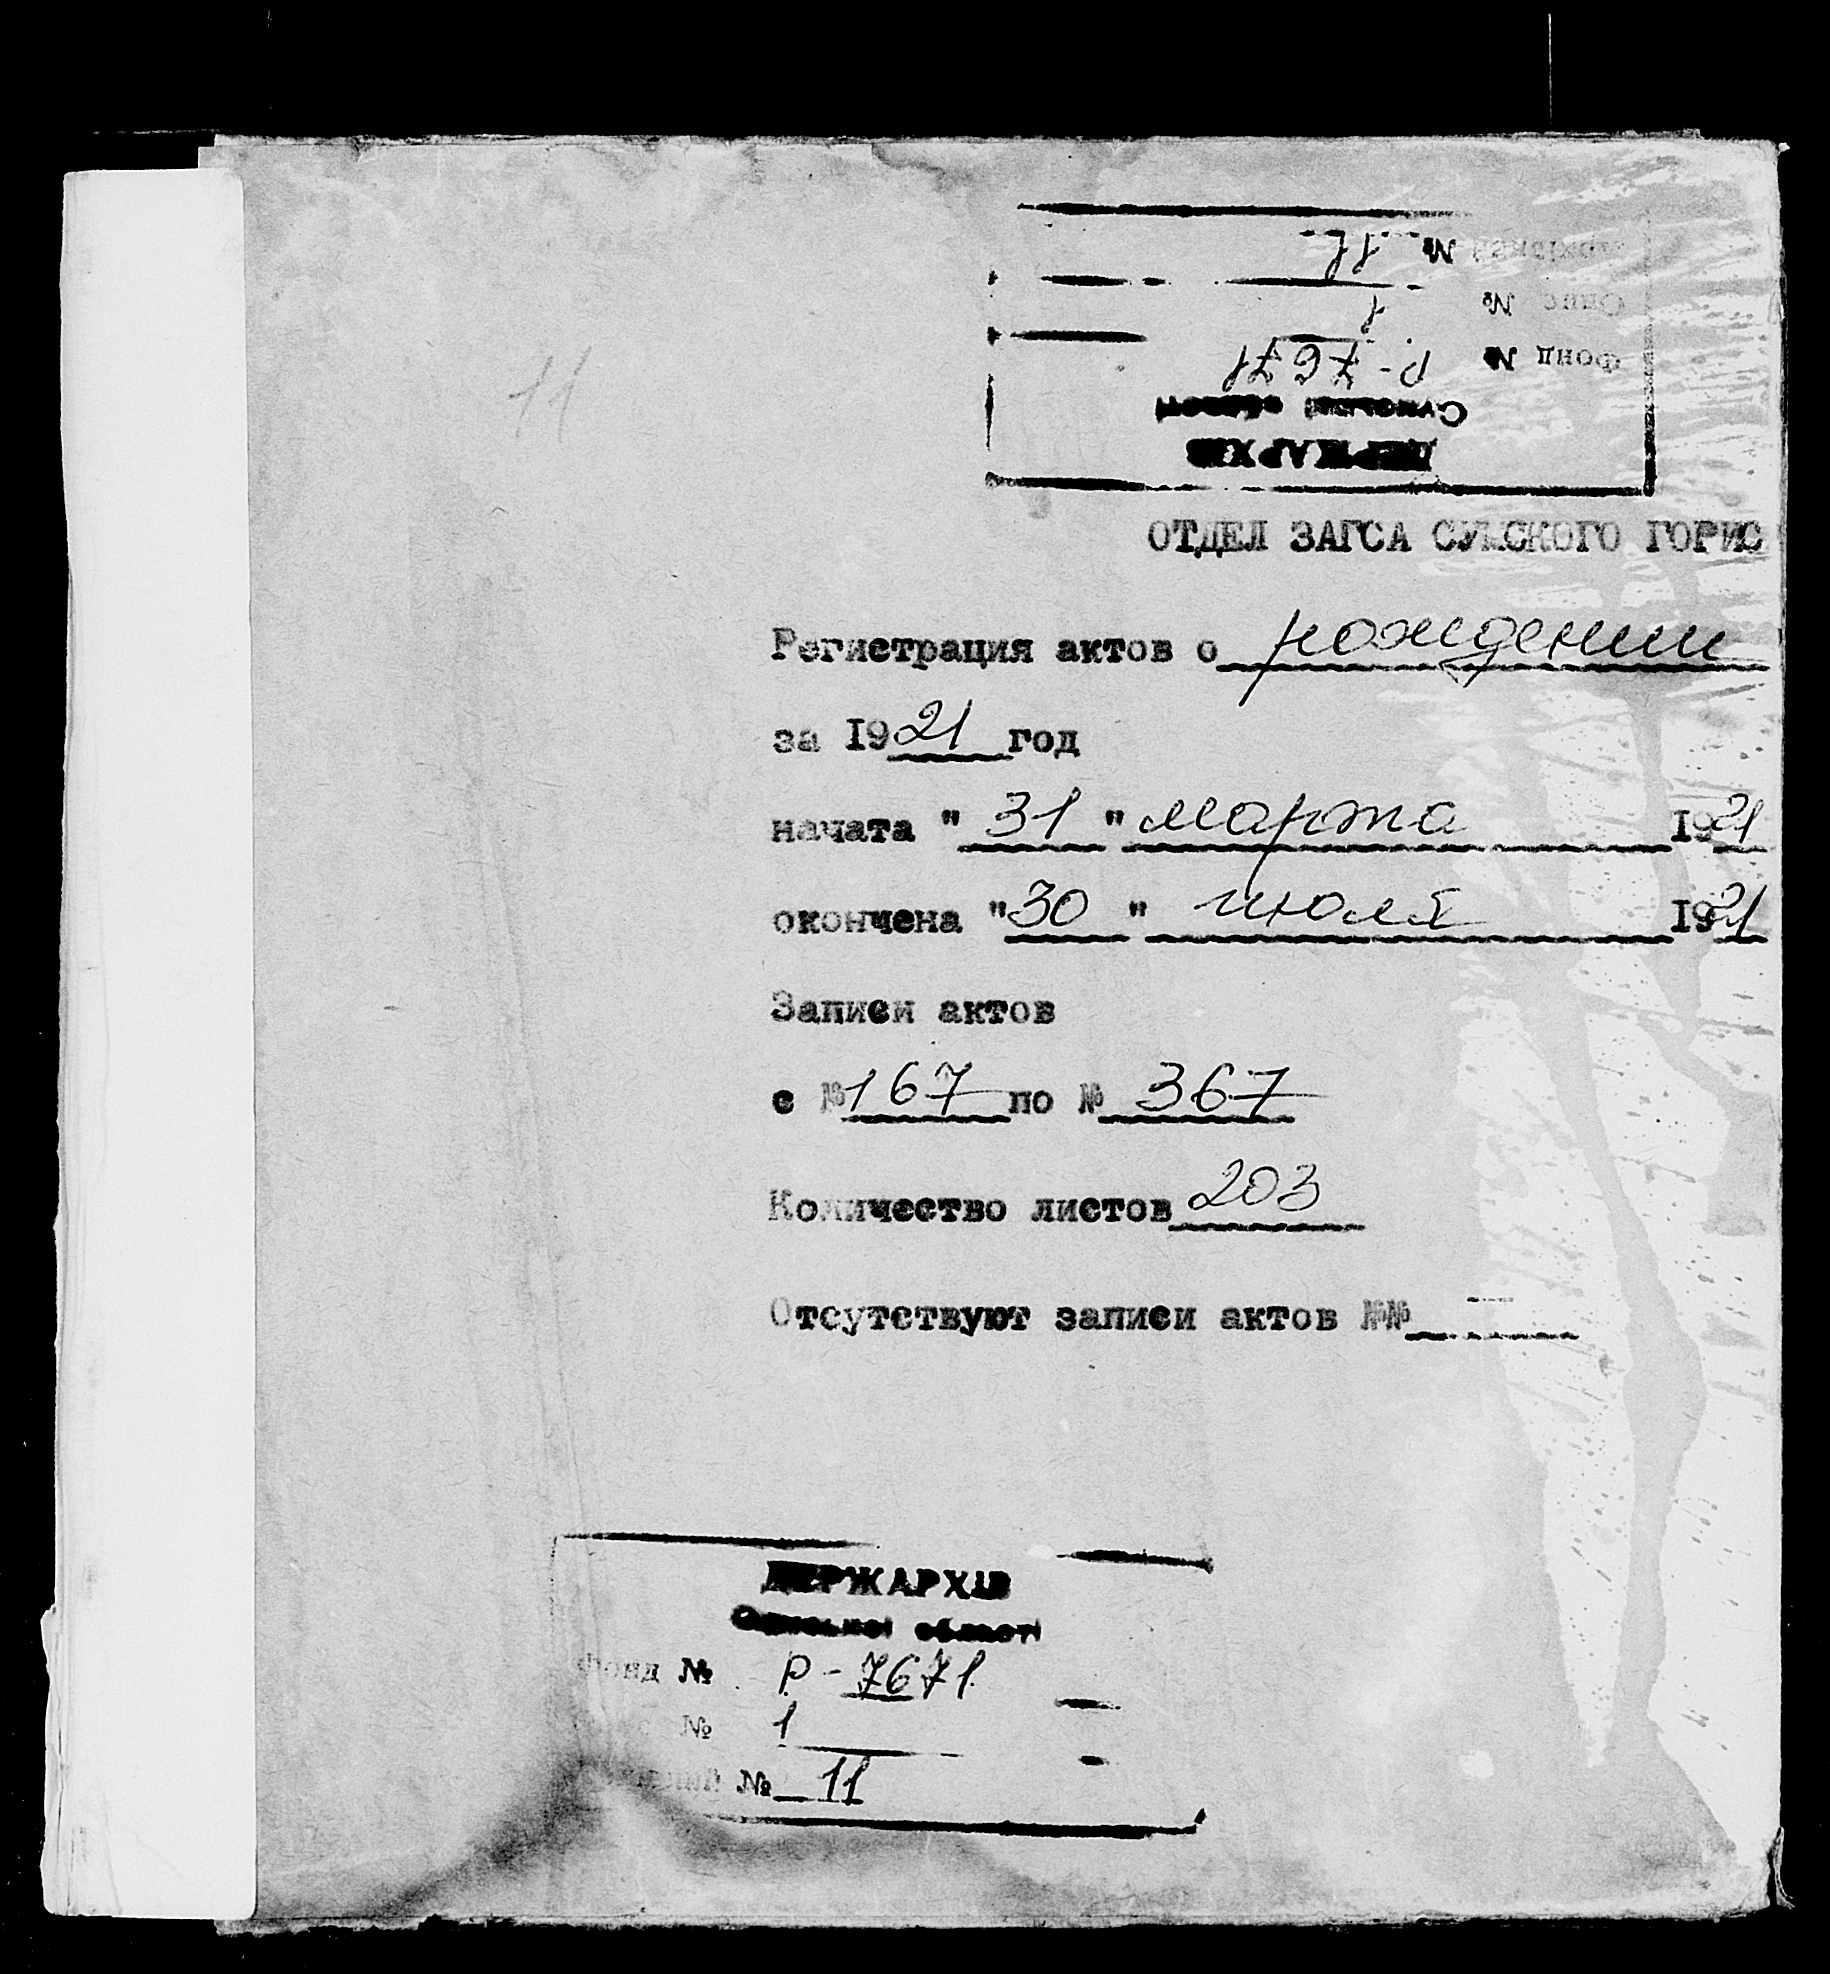 № 11
Опис № 1
Фонд № Р-7671
Сумської області
ДЕРЖАРХІВ
11
ОТДЕЛ ЗАГСА СУМСКОГО ГОРИС
Регистрация актов о рождении
за 1921 год
начата "31" марта 1921
окончена "30" июля 1921
Записи актов
с № 167 по № 367
Количество листов 203
Отсутствуют записи актов №№ —
ДЕРЖАРХІВ
Сумської області
Фонд № Р-7671
№ 1
№ 11